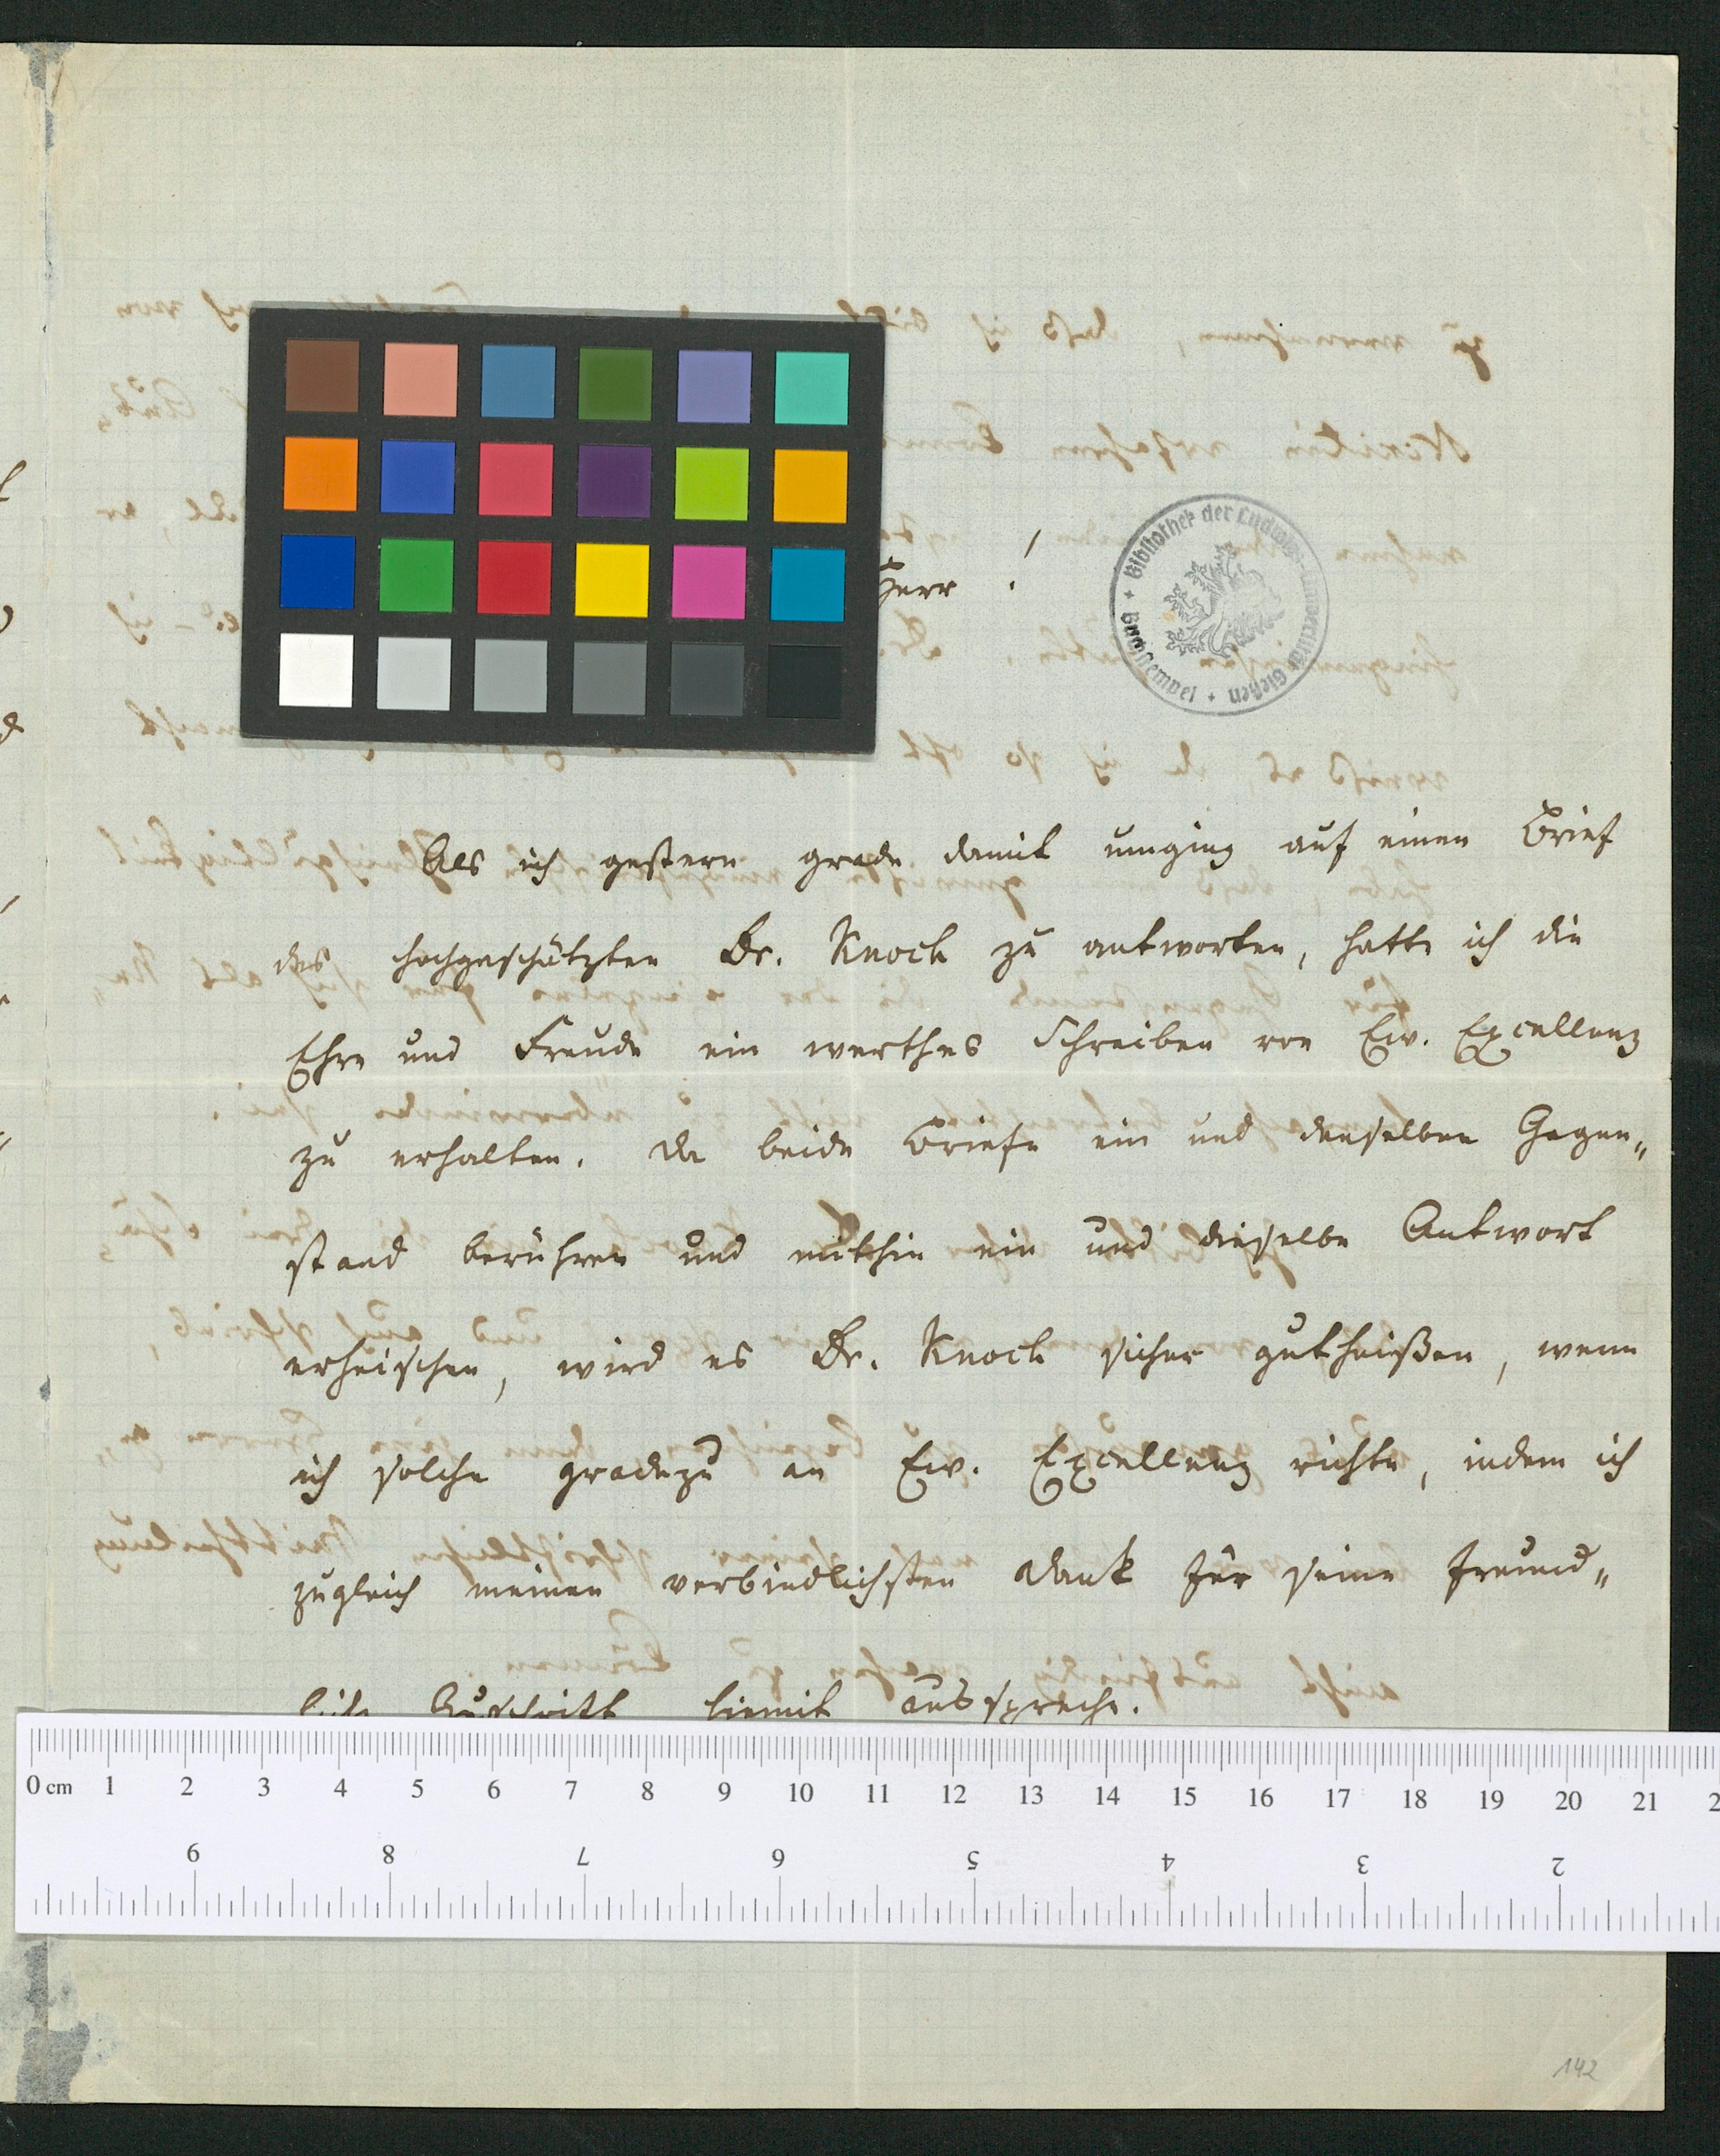 Herr !
Bibliothek der Ludwigs-Universität Gießen + Buchstempel +
Als ich gestern grade damit umging auf einen Brief
des hochgeschätzten Dr. Knoch zu antworten, hatte ich die
Ehre und Freude ein werthes Schreiben von Ew. Excellenz
zu erhalten. Da beide Briefe ein und denselben Gegen„
stand berühren und mithin ein und dieselbe Antwort
erheischen, wird es Dr. Knoch sicher gutheißen, wenn
ich solche gradezu an Ew. Excellenz richte, indem ich
zugleich meinen verbindlichsten Dank für seine freund„
liche Zuschrift hiemit ausspreche.
0 cm 1 2 3 4 5 6 7 8 9 10 11 12 13 14 15 16 17 18 19 20 21 2
9 8 7 6 5 4 3 2
142